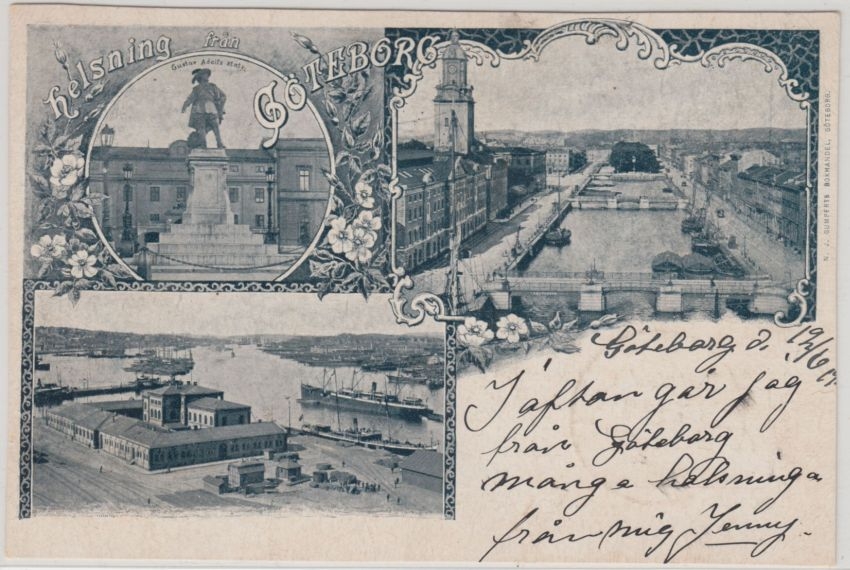 Helsning från
GÖTEBORG
Gustav Adolfs staty.
N. J. GUMPERTS BOKHANDEL, GÖTEBORG.
Göteborg d. 19/6
I afton går jag
från Göteborg
många helsninga
från mig Jenny.